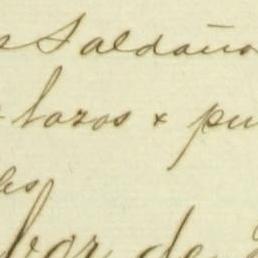 Saldaña
lazos x pu
les
bor de